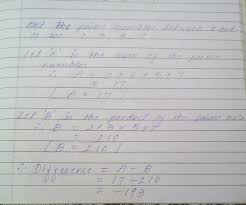 The prime numbers between 1 and
10 are 2, 3, 5, 7
Let 'A' is the sum of the prime
numbers
∴ A = 2+3+5+7
= 17
A = 17
Let 'B' is the product of the prime no's
∴ B = 2x3x5x7
= 210
B = 210
∴ Difference = A - B
= 17 - 210
= -193